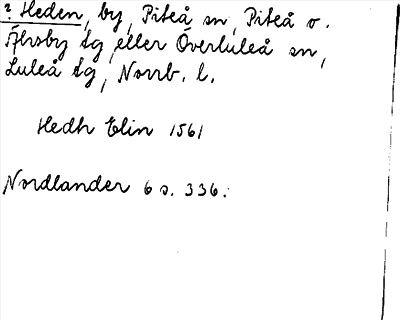 ? Heden, by, Piteå sn, Piteå o.
Älvsby tg, eller Överluleå sn,
Luleå tg, Norrb. l.
Hedh Elin 1561
Nordlander 6 s. 336.